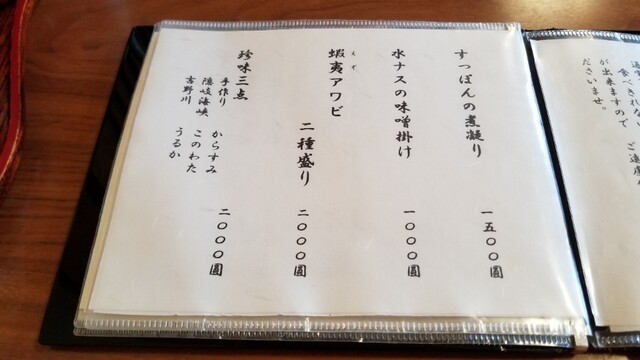 すっぽんの煮凝り 一五〇〇圓
水ナスの味噌掛け 一〇〇〇圓
蝦夷アワビ 二種盛り 二〇〇〇圓
えぞ
珍味三点 二〇〇〇圓
手作り からすみ
隠岐海峡 このわた
吉野川 うるか
が出来ますので
ださいませ。